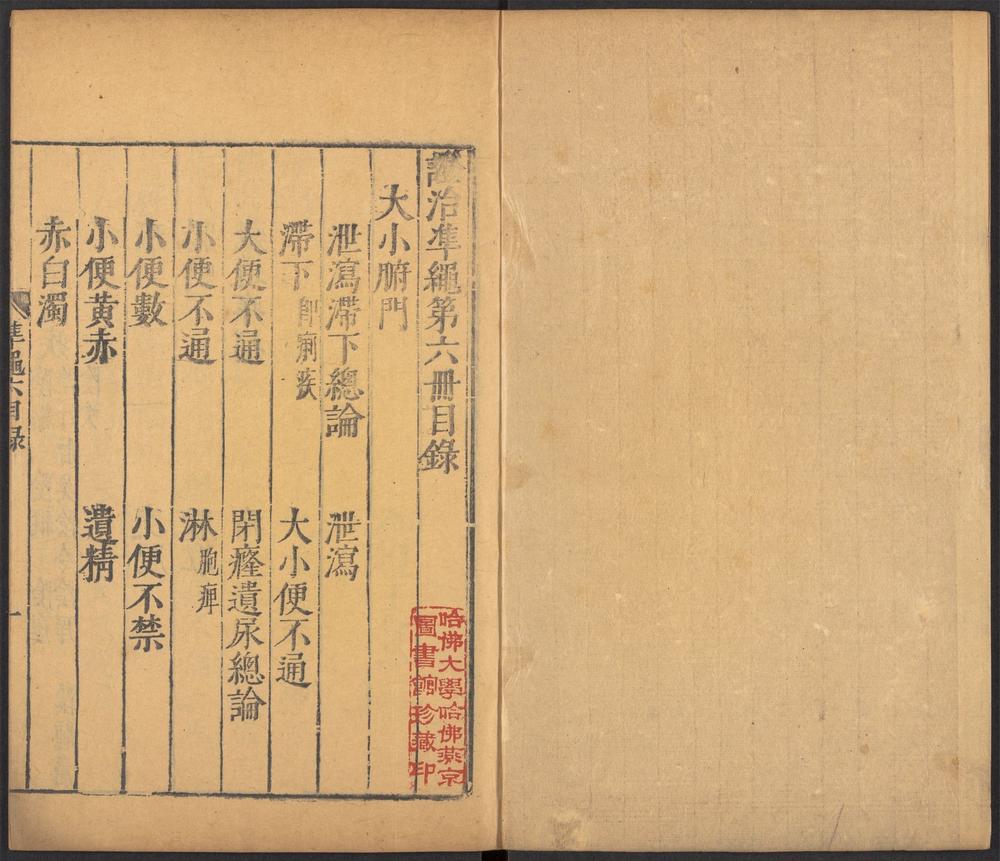 證治準繩第六冊目錄
大小腑門
泄瀉滯下總論　泄瀉
滯下 即痢疾　大小便不通
大便不通　閉癃遺尿總論
小便不通　淋 胞痺
小便數　小便不禁
小便黃赤　遺精
赤白濁
準繩六目錄　一
哈佛大學哈佛燕京
圖書館珍藏印